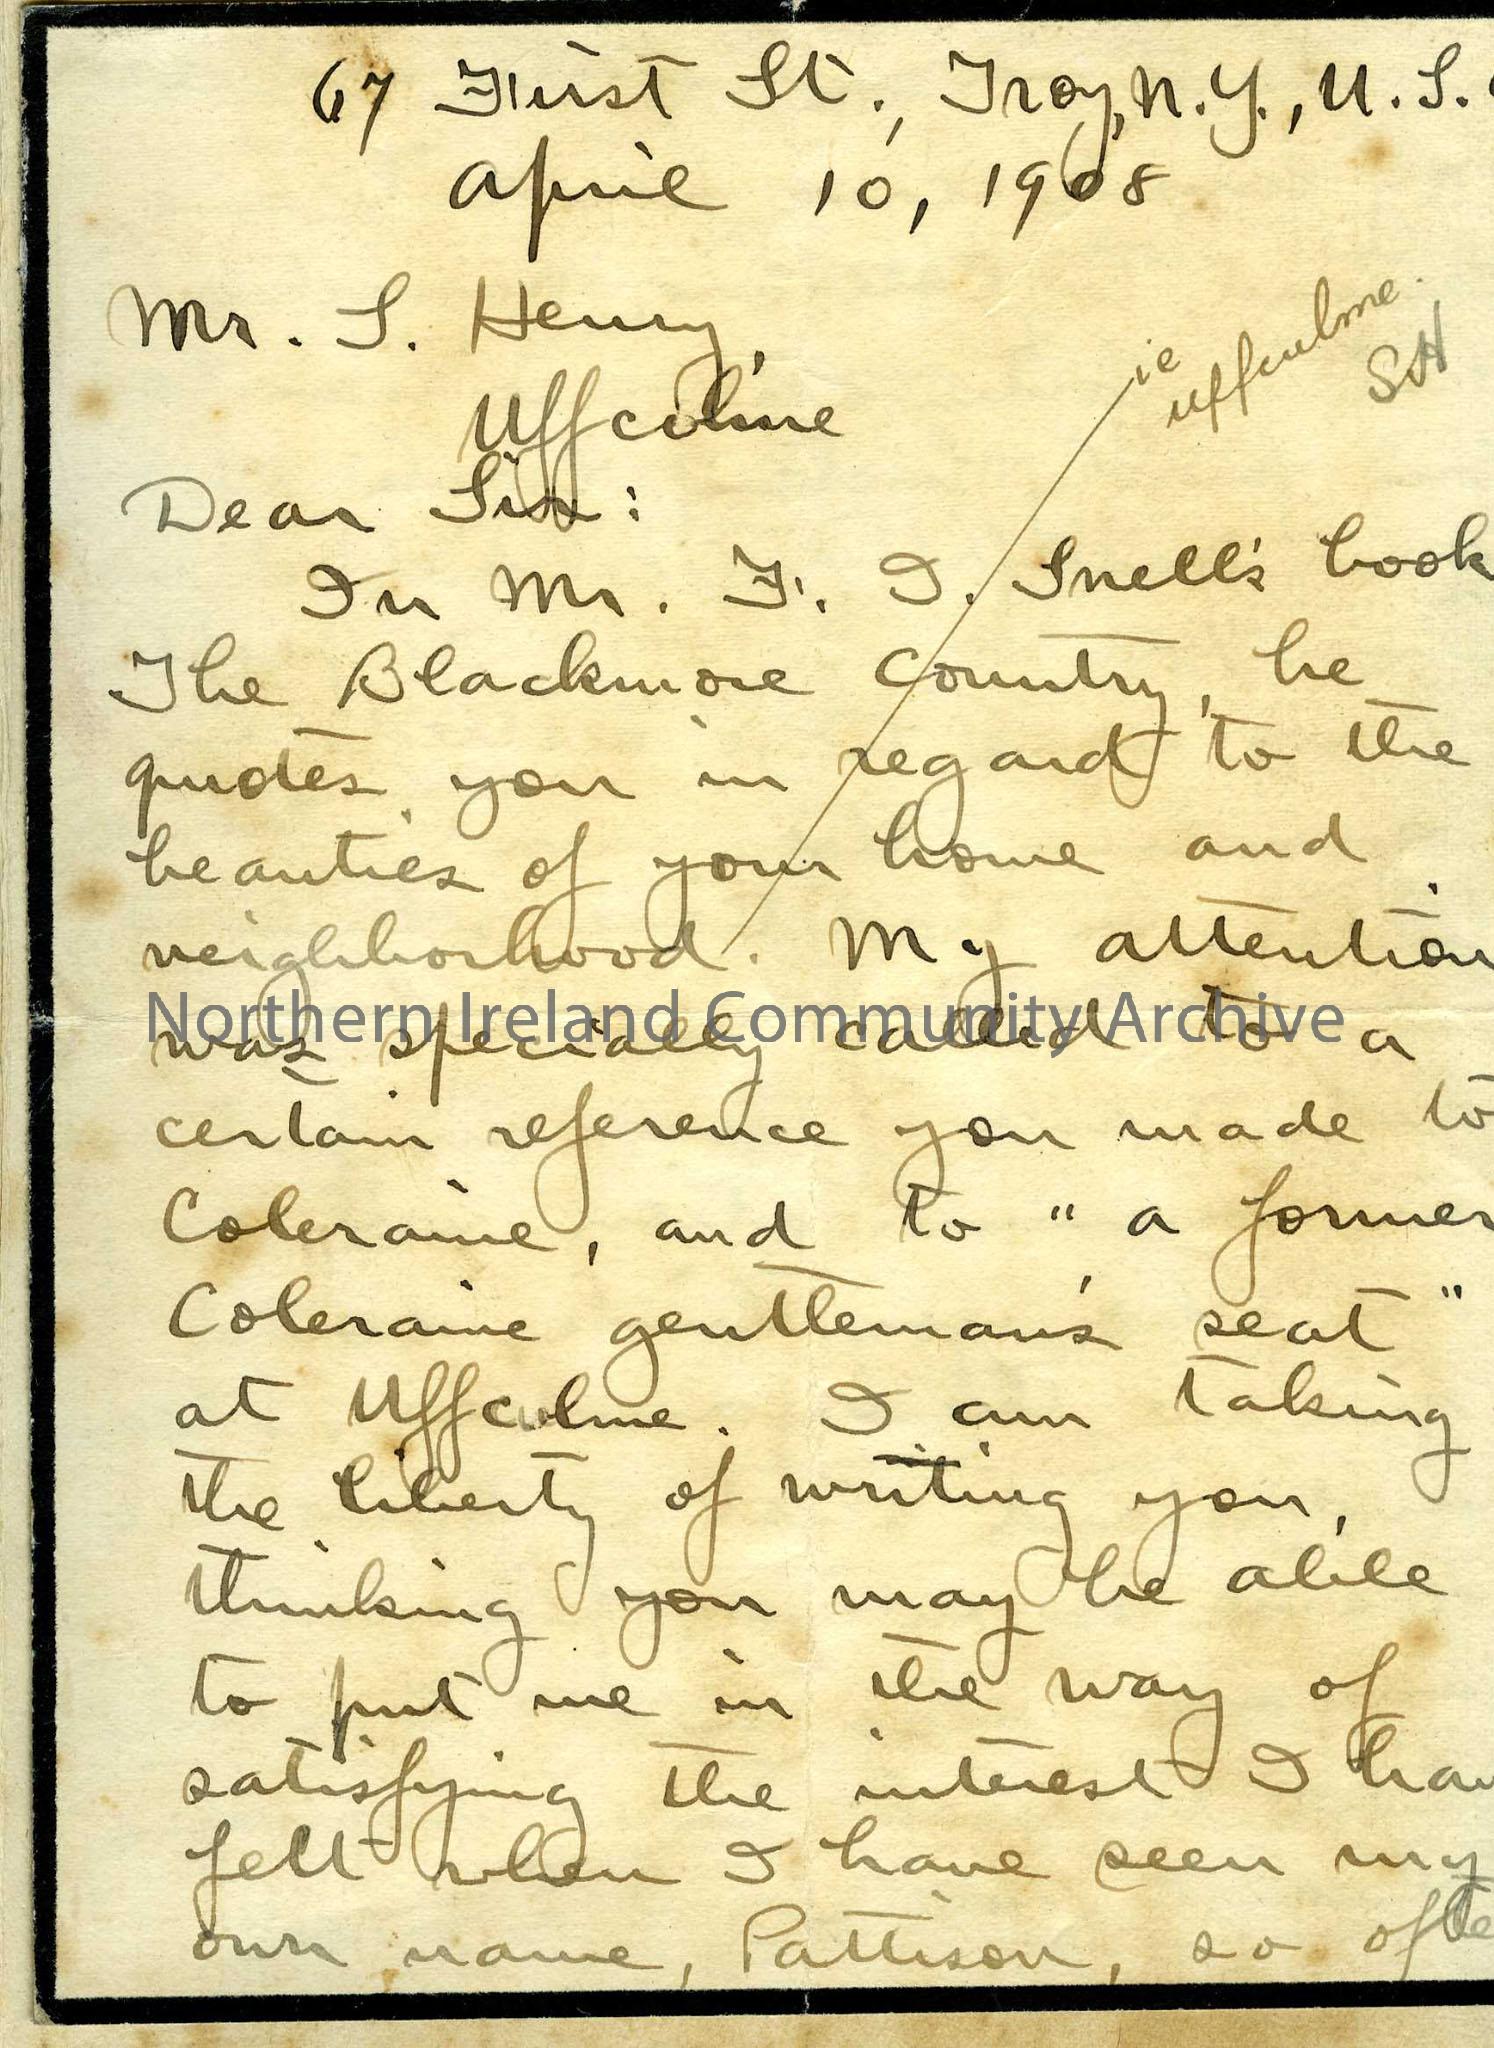 67 First St., Troy, N.Y., U.S.
April 10, 1908
Mr. S. Henry,
Uffcolme
ie
uffculme.
SH
Dear Sir:
In Mr. F. I. Snell's book
The Blackmore Country, he
quotes you in regard to the
beauties of your home and
neighborhood. My attention
was specially called to a
Northern Ireland Community Archive
certain reference you made to
Coleraine, and to "a former
Coleraine gentleman's seat"
at Uffculme. I am taking
the liberty of writing you,
thinking you may be able
to put me in the way of
satisfying the interest I hav
felt when I have seen my
own name, Pattison, so ofte